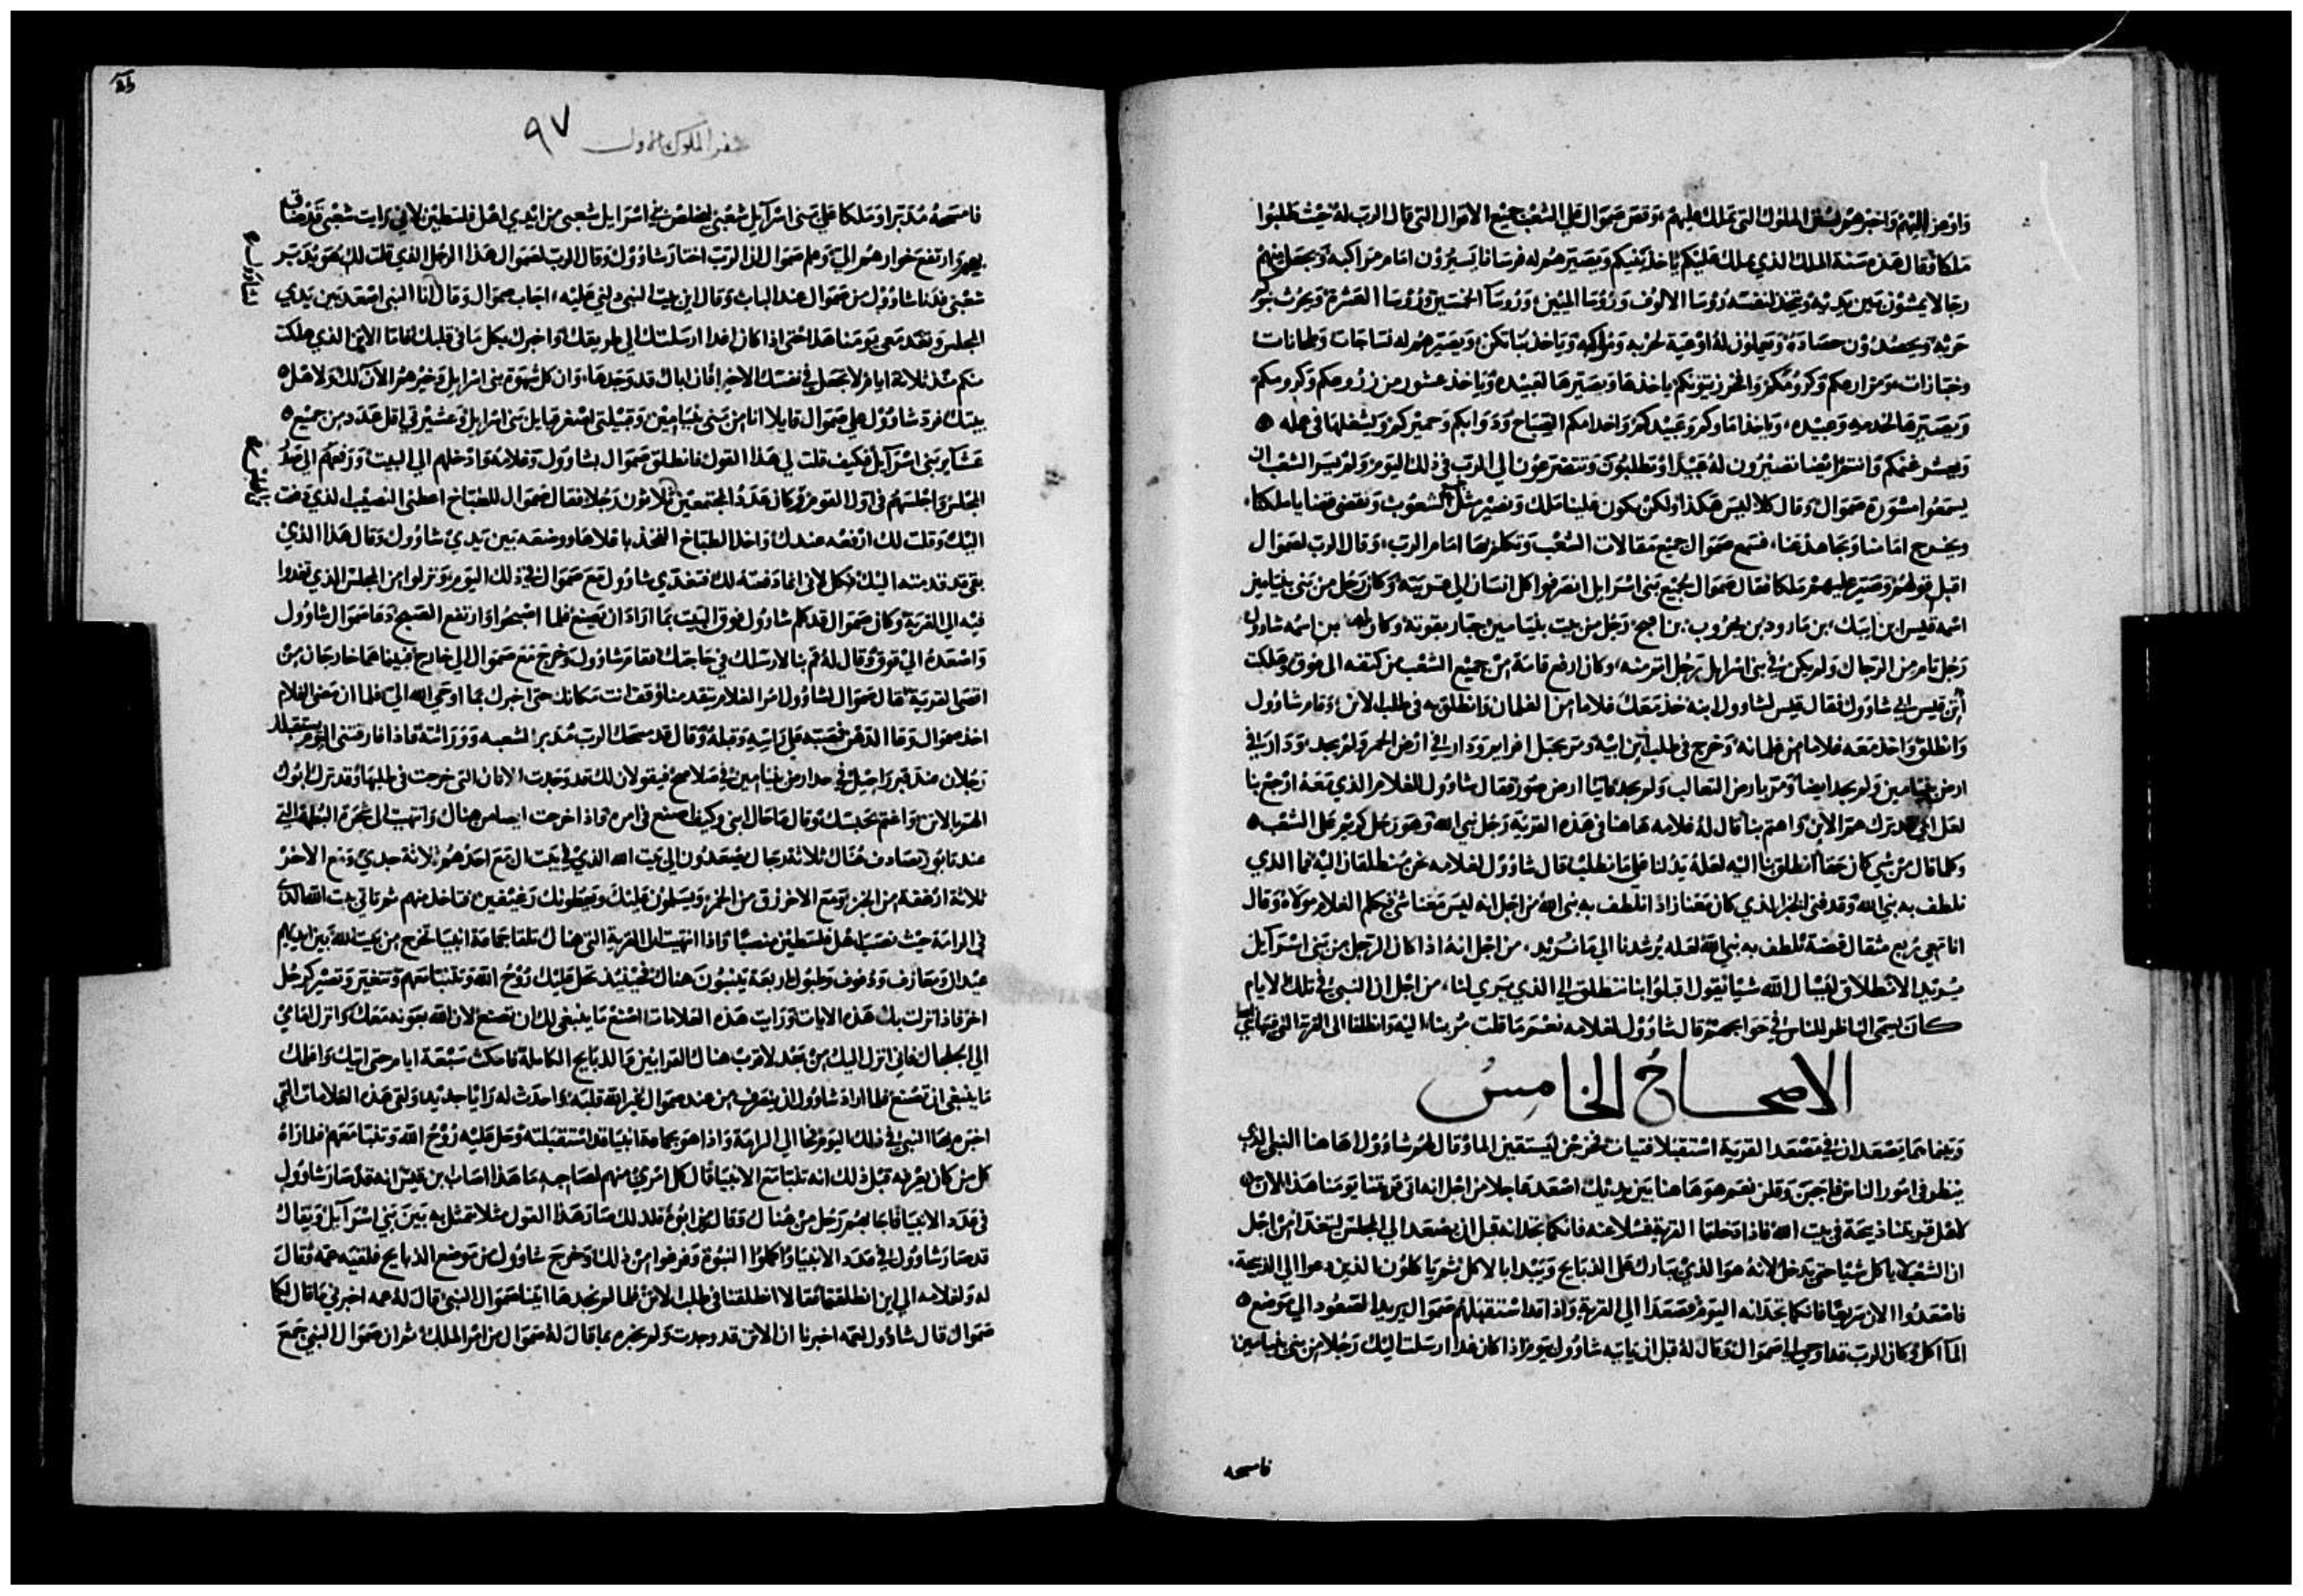 واوعز اليهم واخبرهم بسنن الملوك التي تملك عليهم، وقص صموال علي الشعب جميع الاقوال التي قال الرب له حيث طلبوا
ملكا فقال هذه سنة الملك الذي يملك عليكم ياخذ بنيكم ويصيرهم له فرسانا يسيرون امام مراكبه ويجعل منهم
رجالا يمشون بين يديه ويتخذ لنفسه رووسا الالوف وروسا الميين، وروسآ الخمسين وروسا العشرة ويحرث
حرثه ويحصدون حصاده ويعملون له اوعية لحربه ومراكبه وياخذ بناتكن، ويصيرهم له نساجات وطحانات
وخبازات، ومزارعكم وكرومكم واخر زيتونكم ياخذها ويصيرها لعبيده وياخذ عشور من زروعكم وكرومكم
ويصيرها لخدمه وعبيده، وياخذ اماوكم وعبيدكم واخدامكم الصباح ودوابكم وحميركم ويشغلها في عمله
ويعشر غنمكم وانتم ايضا تصيرون له عبيدا وتطلبون وتتضرعون الي الرب في ذلك اليوم ولم يسر الشعب ان
يسمعوا مشورة صموال وقال كلا ليس هكذا ولكن يكون علينا ملك ونصير مثل الشعوب ويقضي قضايا ملكنا،
ويخرج امامنا ويجاهد عنا، فسمع صموال جميع مقالات الشعب وتكلم بها امام الرب، وقال الرب لصموال
اقبل قولهم وصير عليهم ملكا فقال صموال لجميع بني اسرايل انصرفوا كل انسان الي قريته وكان رجل من بني بنيامين
اسمه قيس ابن ابيك، بن صارود بن بحروب بن افيح، رجل من بيت بنيامين جبار بقوته وكان له بن اسمه شاوول
رجل تام من الرجال ولم يكن في بني اسرايل رجل اتم منه، وكان ارفع قامة من جميع الشعب من كتفه الي فوق وهلكت
أتن قيس ابي شاوول فقال قيس لشاوول ابنه خذ معك غلاما من الغلمان وانطلق به في طلب الاتن، وقام شاوول
وانطلق واخذ معه غلاما من غلمانه وخرج في طلب اتن ابيه ومر بجبل افرايم ودار في ارض الحمر ولم يجد، ودار في
ارض بنيامين ولم يجد ايضا ومر بارض الثعالب ولم يجد واتيا ارض صور فقال شاوول للغلام الذي معه ارجع بنا
لعل ابي يترك هم الاتن واهتم بنا قال له غلامه هاهنا في هذه القرية رجل نبي الله وهو رجل كريم علي الشعب
وكلما قال من شي كان حقا انطلق بنا اليه لعله يدلنا علي ما نطلب قال شاوول لغلامه نحن منطلقان اليه فما الذي
نلطف به نبي الله وقد فني الخبز الذي كان معنا زادا نلطف به نبي الله من اجل انه ليس معنا شي فكلم الغلام مولاه وقال
انا معي ربع مثقال فضة نلطف به نبي الله لعله يرشدنا الي ما نريد، من اجل انه اذا كان الرجل من بني اسرآيل
يريد الانطلاق ليسال الله شيا فيقول اقبلوا بنا ننطلق الي الذي يري لنا، من اجل ان النبي في تلك الايام
كان يسمي الناظر للناس في حوايجهم قال شاوول لغلامه نعم ما قلت مر بنا، اليه وانطلقا الي القرية التي فيها نبي
الاصحاح الخامس
وبينما هما يصعدان في مصعد القرية استقبلا فتيات خرجن ليستقين الما وقال لهم شاوول هاهنا النبي الذي
ينظر في امور الناس فاجبن وقلن نعم هو هاهنا بين يديك اصعد عاجلا من اجل انه اتي قريتنا يومنا هذا الان
لاهل قريتنا ذبيحة في بيت الله فاذا دخلتما القرية فسلا عنه فانكما تجدانه قبل ان يصعد الي المجلس ليتغدا من اجل
ان الشعب لا ياكل شيا حتي يدخل لانه هو الذي يبارك علي الذبايح ويبدا بالاكل ثم ياكلون الذين دعوا الي الذبيحة،
فاصعدوا الان سريعا فانكما تجدانه اليوم فصعدا الي القرية، واذا قد استقبلهم صموال يريد الصعود الي موضع
المآ اكل وكان الرب قد اوحي الي صموال وقال له قبل ان ياتيه شاوول بيوم اذا كان غدا ارسلت اليك رجلا من بني بنيامين
فامسحه
سفر الملوك الاول ٩٧
فامسحه مدبرا وملكا علي بني اسرآيل شعبي ليخلص بني اسرايل شعبي من ايدي اهل فلسطين لاني رايت شعبي قد ضاق
بهم وارتفع خوارهم الي، وعلم صموال ان الرب اختار شاوول وقال الرب لصموال هذا الرجل الذي قلت لك هو يدبر
شعبي فدنا شاوول من صموال عند الباب وقال اين بيت النبي دلني عليه، اجاب صموال وقال انا النبي اصعد بين يدي
المجلس وتغد معي يومنا هذا حتي اذا كان غدا ارسلتك الي طريقك واخبرك بكل ما في قلبك فاما الاتن الذي هلكت
منكم منذ ثلاثة ايام لا تجعل في نفسك الاخيرا فان اباك قد وجدها، وان كل شهوة بني اسرايل وخيرهم الان لك ولاهل
بيتك فرد شاوول علي صموال قايلا انا من بني بنيامين وقبيلتي اصغر قبايل بني اسرايل وعشيرتي اقل عدد من جميع
عشاير بني اسرآيل فكيف قلت لي هذا القول فانطلق صموال بشاوول وغلامه وادخلهم الي البيت ورفعهم الي صدر
المجلس واجلسهم في اول القوم وكان عدة المجتمعين ثلاثون رجلا فقال صموال للطباخ اعطني النصيب الذي دفعت
اليك وقلت لك ارفعه عندك واخذ الطباخ الفخذ باقلاها ووضعه بين يدي شاوول وقال هذا الذي
بقي قد قدمته اليك فكل لاني انما دفعته لك فتغدي شاوول مع صموال في ذلك اليوم، ونزلوا من المجلس الذي تغدوا
فيه الي القرية وكان صموال قد كلم شاوول فوق البيت بما اراد ان يصنع فلما اصبحوا وارتفع الصبح دعا صموال شاوول
واصعده الي فوق وقال له قم بنا لارسلك في حاجتك فقام شاوول وخرج مع صموال الي خارج فبينما هما خارجان من
اقصي القرية قال صموال لشاوول مر الغلام يتقدمنا وقف انت مكانك حتي اخبرك بما اوحي الله الي، فلما ان مضي الغلام
اخذ صموال وعا الدهن فصبه علي راسه وقبله وقال قد مسحك الرب مدبر الشعبه وورائته فاذا فارقتني اليوم يستقبلك
رجلان عند قبر راحيل في حدار من بنيامين في صلاصح فيقولان لك قد وجدت الاتان التي خرجت في طلبها وقد ترك ابوك
هم الاتن، واغتم بحبستك وقال ما حال ابني وكيف اصنع في امره واذ اخرجت ايضا من هناك وانتهيت الي شجرة البطمة التي
عند تابور تصادف هناك ثلاثة رجال يصعدون الي بيت الله الذي في بيت ال مع احدهم ثلاثة جدي ومع الاخر
ثلاثة ارغفة من الخبز ومع الاخر زق من الخمر ويسلمون عليك ويعطونك رغيفين فتاخذ منهم ثم تاتي بيت الله الذي
في الرامة حيث نصب اهل فلسطين منصبا واذا انتهيت الي القرية التي هناك تلقا جماعة انبيا تخرج من بيت الله بين ايديهم
عيدان ومعازف ودفوف وطبول اربعة يتنبون هناك فحينيذ تحل عليك روح الله وتتنبا معهم وتتغير وتصير كرجل
اخر فاذا نزلت بك هذه الايات ورايت هذه العلامات اصنع ما ينبغي لك ان تصنع لان الله بعونه معك وانزل امامي
الي الجلجال فاني انزل اليك من بعد لاقرب هناك القرابين والذبايح الكاملة فامكث سبعة ايام حتي اتيك واعلمك
ما ينبغي ان تصنع فلما اراد شاوول ان ينصرف من عند صموال غير الله قلبه واحدث له رايا جديدا ولقي هذه العلامات التي
اخبره بها النبي في ذلك اليوم فجا الي الرامة واذا هو بجماعة انبيا قد استقبلته وحل عليه روح الله وتنبا معهم فلما راه
كل من كان يعرفه قبل ذلك انه تنبا مع الانبيا قال كل امري منهم لصاحبه ما هذا اصاب بن قيس انه قد صار شاوول
في عدد الانبيا فاجابهم رجل من هناك وقال من ابوه فلذلك صار هذا القول مثلا تمثل به بين بني اسرآيل ويقال
قد صار شاوول في عدد الانبيا واكملوا النبوة وفرغوا من ذلك وخرج شاوول من موضع الذبايح فلقيه عمه وقال
له ولغلامه الي اين انطلقتما فقالا انطلقنا في طلب الاتن فلما لم نجدها اتينا صموال النبي قال له عمه اخبرني ما قال لكما
صموال قال شاوول لعمه اخبرنا ان الاتن قد وجدت ولم يخبره بما قال له صموال من امر الملك ثم ان صموال النبي جمع